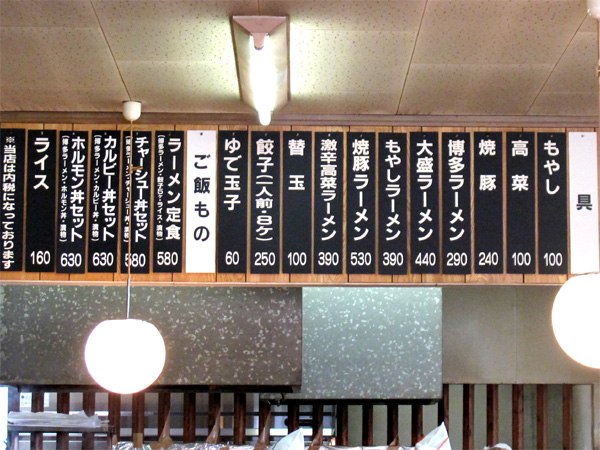 具
もやし 100
高菜 100
焼豚 240
博多ラーメン 290
大盛ラーメン 440
もやしラーメン 390
焼豚ラーメン 530
激辛高菜ラーメン 390
替玉 100
餃子(一人前・8ケ) 250
ゆで玉子 60
ご飯もの
ラーメン定食
(博多ラーメン・餃子5ケ・ライス・漬物)
580
チャーシュー丼セット
(博多ラーメン・チャーシュー丼・漬物)
580
カルビー丼セット
(博多ラーメン・カルビー丼・漬物)
630
ホルモン丼セット
(博多ラーメン・ホルモン丼・漬物)
630
ライス 160
※当店は内税になっております